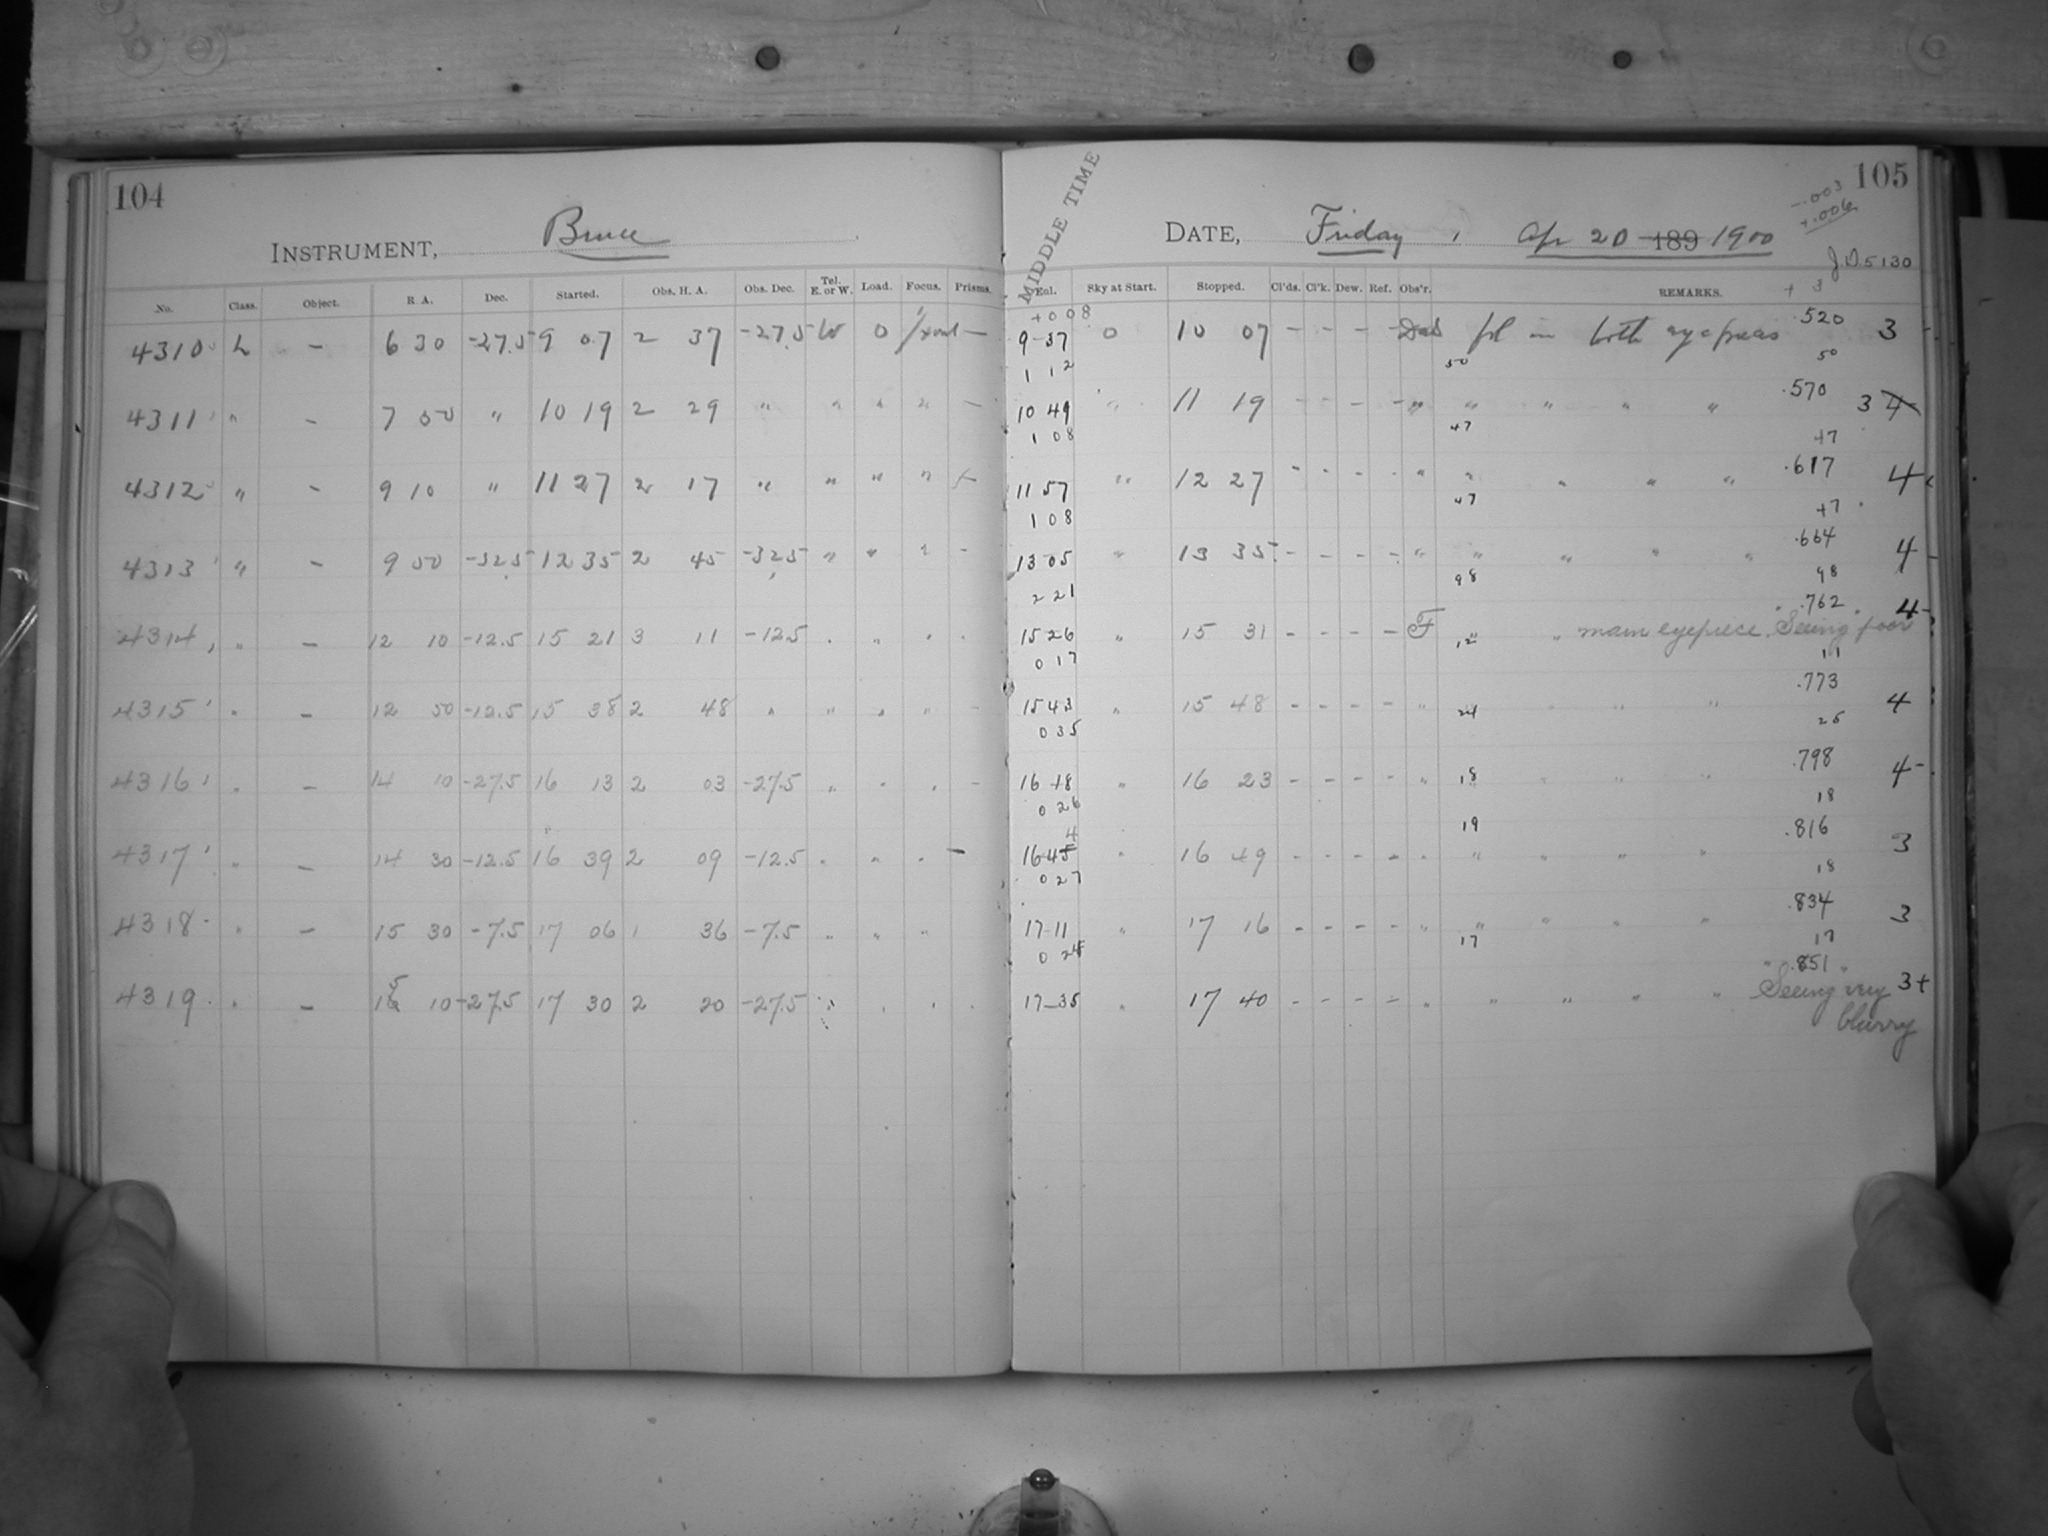 104
INSTRUMENT, Bruce
No. Class. Object. R A. Dec. Started. Obs. H. A. Obs. Dec. Tel. E. or W. Load. Focus. Prisms.
4310 L - 6 30 -27.5 9 07 2 37 -27.5 W 0 —
4311 " - 7 50 " 10 19 2 29 " " " " -
4312 " - 9 10 " 11 27 2 17 " " " "
4313 " - 9 50 -32.5 12 35 2 45 -32.5 " " " -
4314 " - 12 10 -12.5 15 21 3 11 -12.5 " " " "
4315 " - 12 50 -12.5 15 38 2 48 " " " " -
4316 " - 14 10 -27.5 16 13 2 03 -27.5 " " " -
4317 " - 14 30 -12.5 16 39 2 09 -12.5 " " " -
4318 " - 15 30 -7.5 17 06 1 36 -7.5 " " "
4319 " - 15 10 -27.5 17 30 2 20 -27.5 " " " "
105
MIDDLE TIME
-.003
+.006
DATE, Friday, Apr 20 189 1900
J.D. 5130
Sky at Start. Stopped. Cl'ds. Cl'k. Dew. Ref. Obs'r. REMARKS.
+ 3
+008
9-37 0 10 07 - - - - fol in both eyepieces .520 3
1 12 50 50
10 49 " 11 19 - - - - " " " " " .570 3 4
1 08 47 47
11 57 " 12 27 - - - - " " " " " .617 4
1 08 47 47
13 05 " 13 35 - - - - " " " " " .664 4
2 21 98 98
15 26 " 15 31 - - - - F " " main eyepiece. "Seeing poor" .762 4-
0 17 12 11
15 43 " 15 48 - - - - " " " " .773 4
0 35 24 25
16 18 " 16 23 - - - - " " " " " .798 4-
0 26 18 18
16 45 4 " 16 49 - - - - " " " " " .816 3
0 27 19 18
17-11 " 17 16 - - - - " " " " " .834 3
0 24 17 17
17-35 " 17 40 - - - - " " " " " .851 "Seeing very 3+
blurry